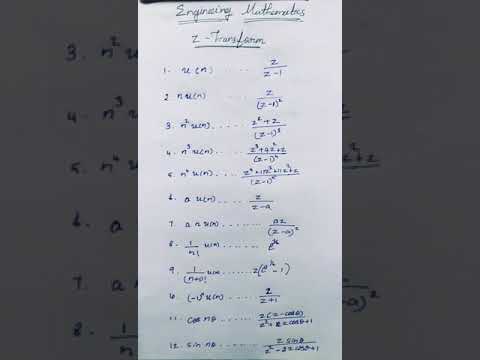 Engineering Mathematics
Z-Transform
1. u(n) ...... z/(z-1)
2 n u(n) z/(z-1)²
3. n² u(n) ...... (z²+z)/(z-1)³
4. n³ u(n) ...... (z³+4z²+z)/(z-1)⁴
5. n⁴ u(n) ......
6. a u(n) ...... z/(z-a)
7. a n u(n) ...... az/(z-a)²
8. 1/n! u(n) ...... e^(1/z)
9. 1/(n+1)! u(n) ...... z(e^(1/z) -1)
10. (-1)ⁿ u(n) ...... z/(z+1)
11. cos nθ ...... z(z-cosθ)/(z²-2zcosθ+1)
12. sin nθ ...... z sinθ/(z²-2zcosθ+1)
3. n² u(n)
4. n³ u(n)
5. n⁴ u(n)
6. a
7. a n
8. 1/n!